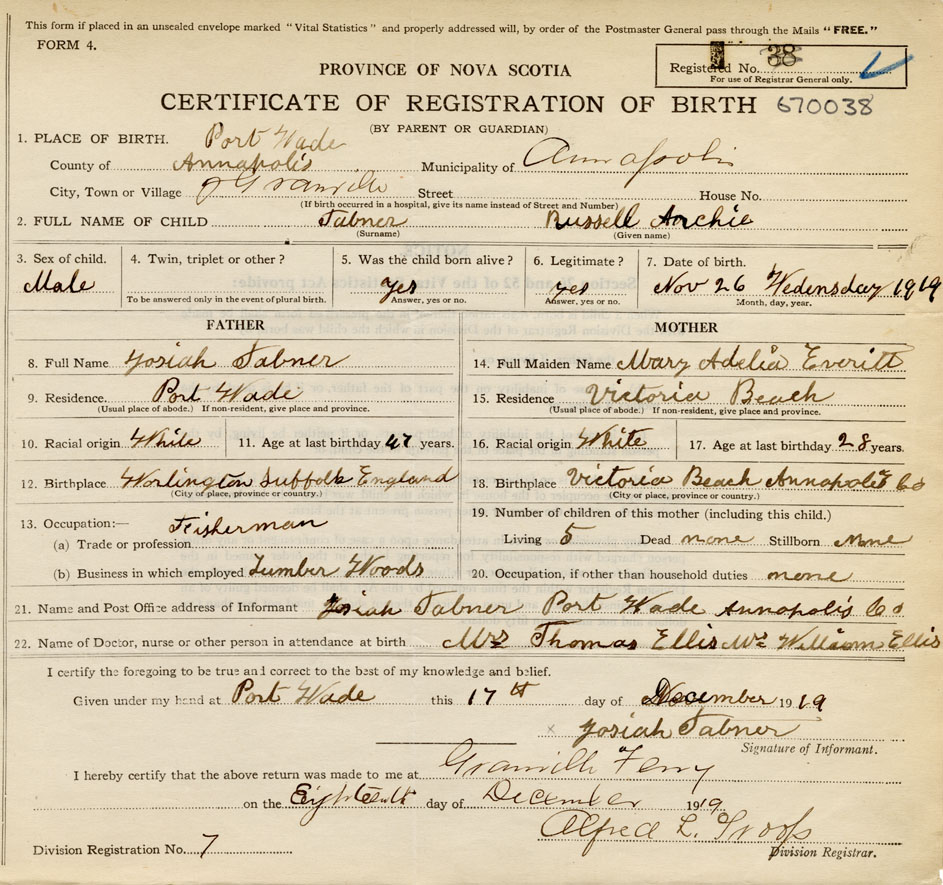 This form if placed in an unsealed envelope marked "Vital Statistics" and properly addressed will, by order of the Postmaster General pass through the Mails "FREE."
FORM 4.
Registered No. 38
For use of Registrar General only.
PROVINCE OF NOVA SCOTIA
CERTIFICATE OF REGISTRATION OF BIRTH 670038
(BY PARENT OR GUARDIAN)
1. PLACE OF BIRTH. Port Wade
County of Annapolis Municipality of Annapolis
City, Town or Village Granville Street House No.
(If birth occurred in a hospital, give its name instead of Street and Number)
2. FULL NAME OF CHILD Tabner Russell Archie
(Surname) (Given name)
3. Sex of child. Male
4. Twin, triplet or other?
To be answered only in the event of plural birth.
5. Was the child born alive? Yes
Answer, yes or no.
6. Legitimate? yes
Answer, yes or no.
7. Date of birth.
Nov 26 Wedensday 1919
Month, day, year.
FATHER
8. Full Name Josiah Tabner
9. Residence Port Wade
(Usual place of abode.) If non-resident, give place and province.
10. Racial origin White 11. Age at last birthday 47 years.
12. Birthplace Worlington Suffolk England
(City of place, province or country.)
13. Occupation:— Fisherman
(a) Trade or profession
(b) Business in which employed Lumber Woods
MOTHER
14. Full Maiden Name Mary Adelia Everitt
15. Residence Victoria Beach
(Usual place of abode.) If non-resident, give place and province.
16. Racial origin White 17. Age at last birthday 28 years.
18. Birthplace Victoria Beach Annapolis Co
(City or place, province or country.)
19. Number of children of this mother (including this child.)
Living 5 Dead none Stillborn None
20. Occupation, if other than household duties none
21. Name and Post Office address of Informant Josiah Tabner Port Wade Annapolis Co
22. Name of Doctor, nurse or other person in attendance at birth Mrs Thomas Ellis Mrs William Ellis
I certify the foregoing to be true and correct to the best of my knowledge and belief.
Given under my hand at Port Wade this 17th day of December 1919
Josiah Tabner
Signature of Informant.
I hereby certify that the above return was made to me at Granville Ferry
on the Eighteenth day of December 1919
Alfred L.
Division Registration No. 7 Division Registrar.